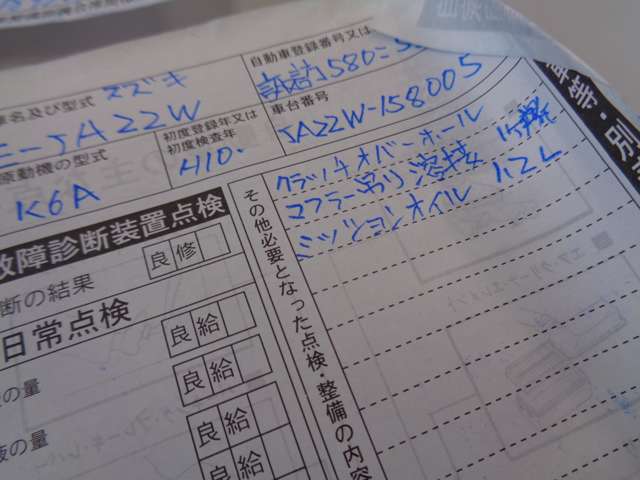 車名及び型式
スズキ
E-JA22W
自動車登録番号又は
諏訪580こ5
原動機の型式
K6A
初度登録年又は
初度検査年
H10.
車台番号
JA22W-158005
故障診断装置点検
断の結果
良 修
日常点検
の量
良 給
液の量
良 給
良 給
良 給
その他必要となった点検・整備の内容
クラッチオーバーホール
マフラー吊り溶接 1ケ所
ミッションオイル 1.2L
車等・別
エア・クリーナ・エレメント